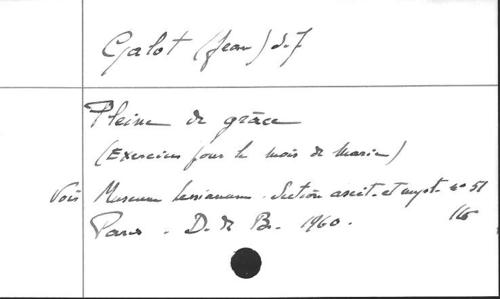 Galot (Jean) s.J
Pleine de grâce
(Exercices pour le mois de Marie)
Voir Museum Lessianum. Section ascét. et myst. n° 51
Paris. D. de Br. 1960. 116